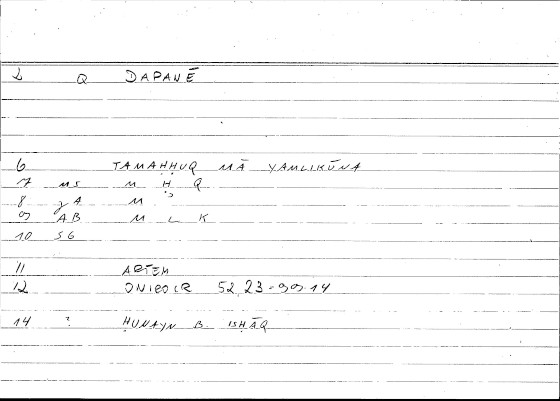 2 Q DAPANĒ
6 TAMAḤḤUQ MĀ YAMLIKŪNA
7 MS M Ḥ Q
8 M
9 AB M L K
10 SG
11 ARTEM
12 ONIROCR 52, 23 - 14
14 ? ḤUNAYN B. ISḤĀQ